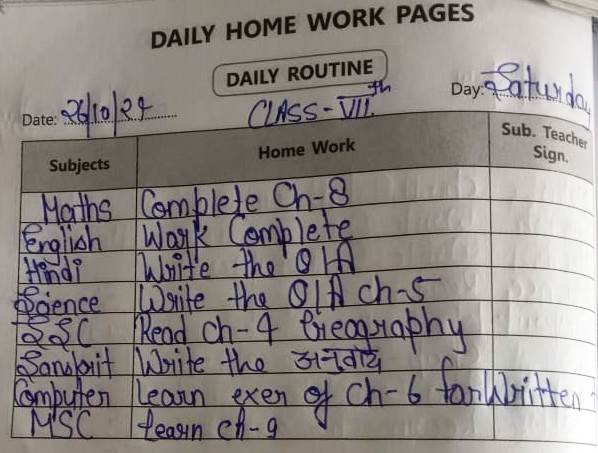 DAILY HOME WORK PAGES
DAILY ROUTINE
Date: 26/10/24 CLASS-VIIth Day: Saturday
Subjects Home Work Sub. Teacher Sign.
Maths Complete Ch-8
English Work Complete
Hindi Write the Q/A
Science Write the Q/A ch-5
SSC Read ch-4 Greography
Sanskrit Write the अनुवाद
Computer learn exer of Ch-6 for Written
MSC learn ch-9